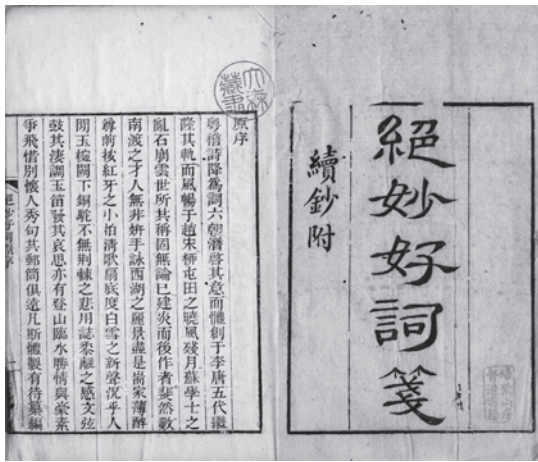 絕妙好詞箋
續鈔附
原序
粤稽詩降爲詞六朝濬啓其意而體創于李唐五代繼
隆其軌而風暢于趙宋柳屯田之曉風殘月蘇學士之
亂石崩雲世所共稱固無論已建炎而後作者斐然數
南渡之才人無非姸手詠西湖之麗景盡是耑家薄醉
尊前按紅牙之小拍清歌扇底度白雪之新聲况乎人
閒玉椀闕下銅駝不無荆棘之悲用誌黍離之感文弦
鼓其凄調玉笛發其哀思亦有登山臨水勝情與豪素
爭飛惜別懷人秀句共郵筒俱遠凡斯體製有待纂編
絕妙好詞原序